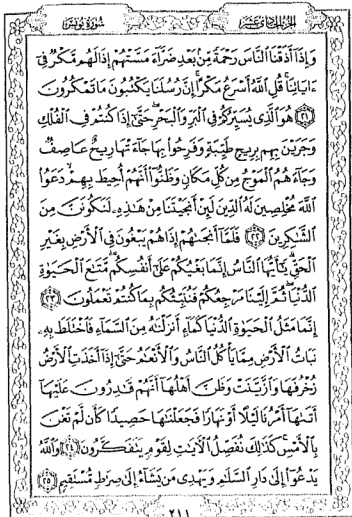 الجزء الحادي عشر سورة يونس
وَإِذَآ أَذَقْنَا ٱلنَّاسَ رَحْمَةً مِّنۢ بَعْدِ ضَرَّآءَ مَسَّتْهُمْ إِذَا لَهُم مَّكْرٌ فِىٓ
ءَايَاتِنَا ۚ قُلِ ٱللَّهُ أَسْرَعُ مَكْرًا ۚ إِنَّ رُسُلَنَا يَكْتُبُونَ مَا تَمْكُرُونَ
﴿٢١﴾ هُوَ ٱلَّذِى يُسَيِّرُكُمْ فِى ٱلْبَرِّ وَٱلْبَحْرِ ۖ حَتَّىٰٓ إِذَا كُنتُمْ فِى ٱلْفُلْكِ
وَجَرَيْنَ بِهِم بِرِيحٍ طَيِّبَةٍ وَفَرِحُوا۟ بِهَا جَآءَتْهَا رِيحٌ عَاصِفٌ
وَجَآءَهُمُ ٱلْمَوْجُ مِن كُلِّ مَكَانٍ وَظَنُّوٓا۟ أَنَّهُمْ أُحِيطَ بِهِمْ ۙ دَعَوُا۟
ٱللَّهَ مُخْلِصِينَ لَهُ ٱلدِّينَ لَئِنْ أَنجَيْتَنَا مِنْ هَـٰذِهِۦ لَنَكُونَنَّ مِنَ
ٱلشَّـٰكِرِينَ ﴿٢٢﴾ فَلَمَّآ أَنجَىٰهُمْ إِذَا هُمْ يَبْغُونَ فِى ٱلْأَرْضِ بِغَيْرِ
ٱلْحَقِّ ۗ يَـٰٓأَيُّهَا ٱلنَّاسُ إِنَّمَا بَغْيُكُمْ عَلَىٰٓ أَنفُسِكُم ۖ مَّتَـٰعَ ٱلْحَيَوٰةِ
ٱلدُّنْيَا ۖ ثُمَّ إِلَيْنَا مَرْجِعُكُمْ فَنُنَبِّئُكُم بِمَا كُنتُمْ تَعْمَلُونَ ﴿٢٣﴾
إِنَّمَا مَثَلُ ٱلْحَيَوٰةِ ٱلدُّنْيَا كَمَآءٍ أَنزَلْنَـٰهُ مِنَ ٱلسَّمَآءِ فَٱخْتَلَطَ بِهِۦ
نَبَاتُ ٱلْأَرْضِ مِمَّا يَأْكُلُ ٱلنَّاسُ وَٱلْأَنْعَـٰمُ حَتَّىٰٓ إِذَآ أَخَذَتِ ٱلْأَرْضُ
زُخْرُفَهَا وَٱزَّيَّنَتْ وَظَنَّ أَهْلُهَآ أَنَّهُمْ قَـٰدِرُونَ عَلَيْهَآ
أَتَىٰهَآ أَمْرُنَا لَيْلًا أَوْ نَهَارًا فَجَعَلْنَـٰهَا حَصِيدًا كَأَن لَّمْ تَغْنَ
بِٱلْأَمْسِ ۚ كَذَٰلِكَ نُفَصِّلُ ٱلْءَايَـٰتِ لِقَوْمٍ يَتَفَكَّرُونَ ﴿٢٤﴾ وَٱللَّهُ
يَدْعُوٓا۟ إِلَىٰ دَارِ ٱلسَّلَـٰمِ وَيَهْدِى مَن يَشَآءُ إِلَىٰ صِرَٰطٍ مُّسْتَقِيمٍ ﴿٢٥﴾
٢١١